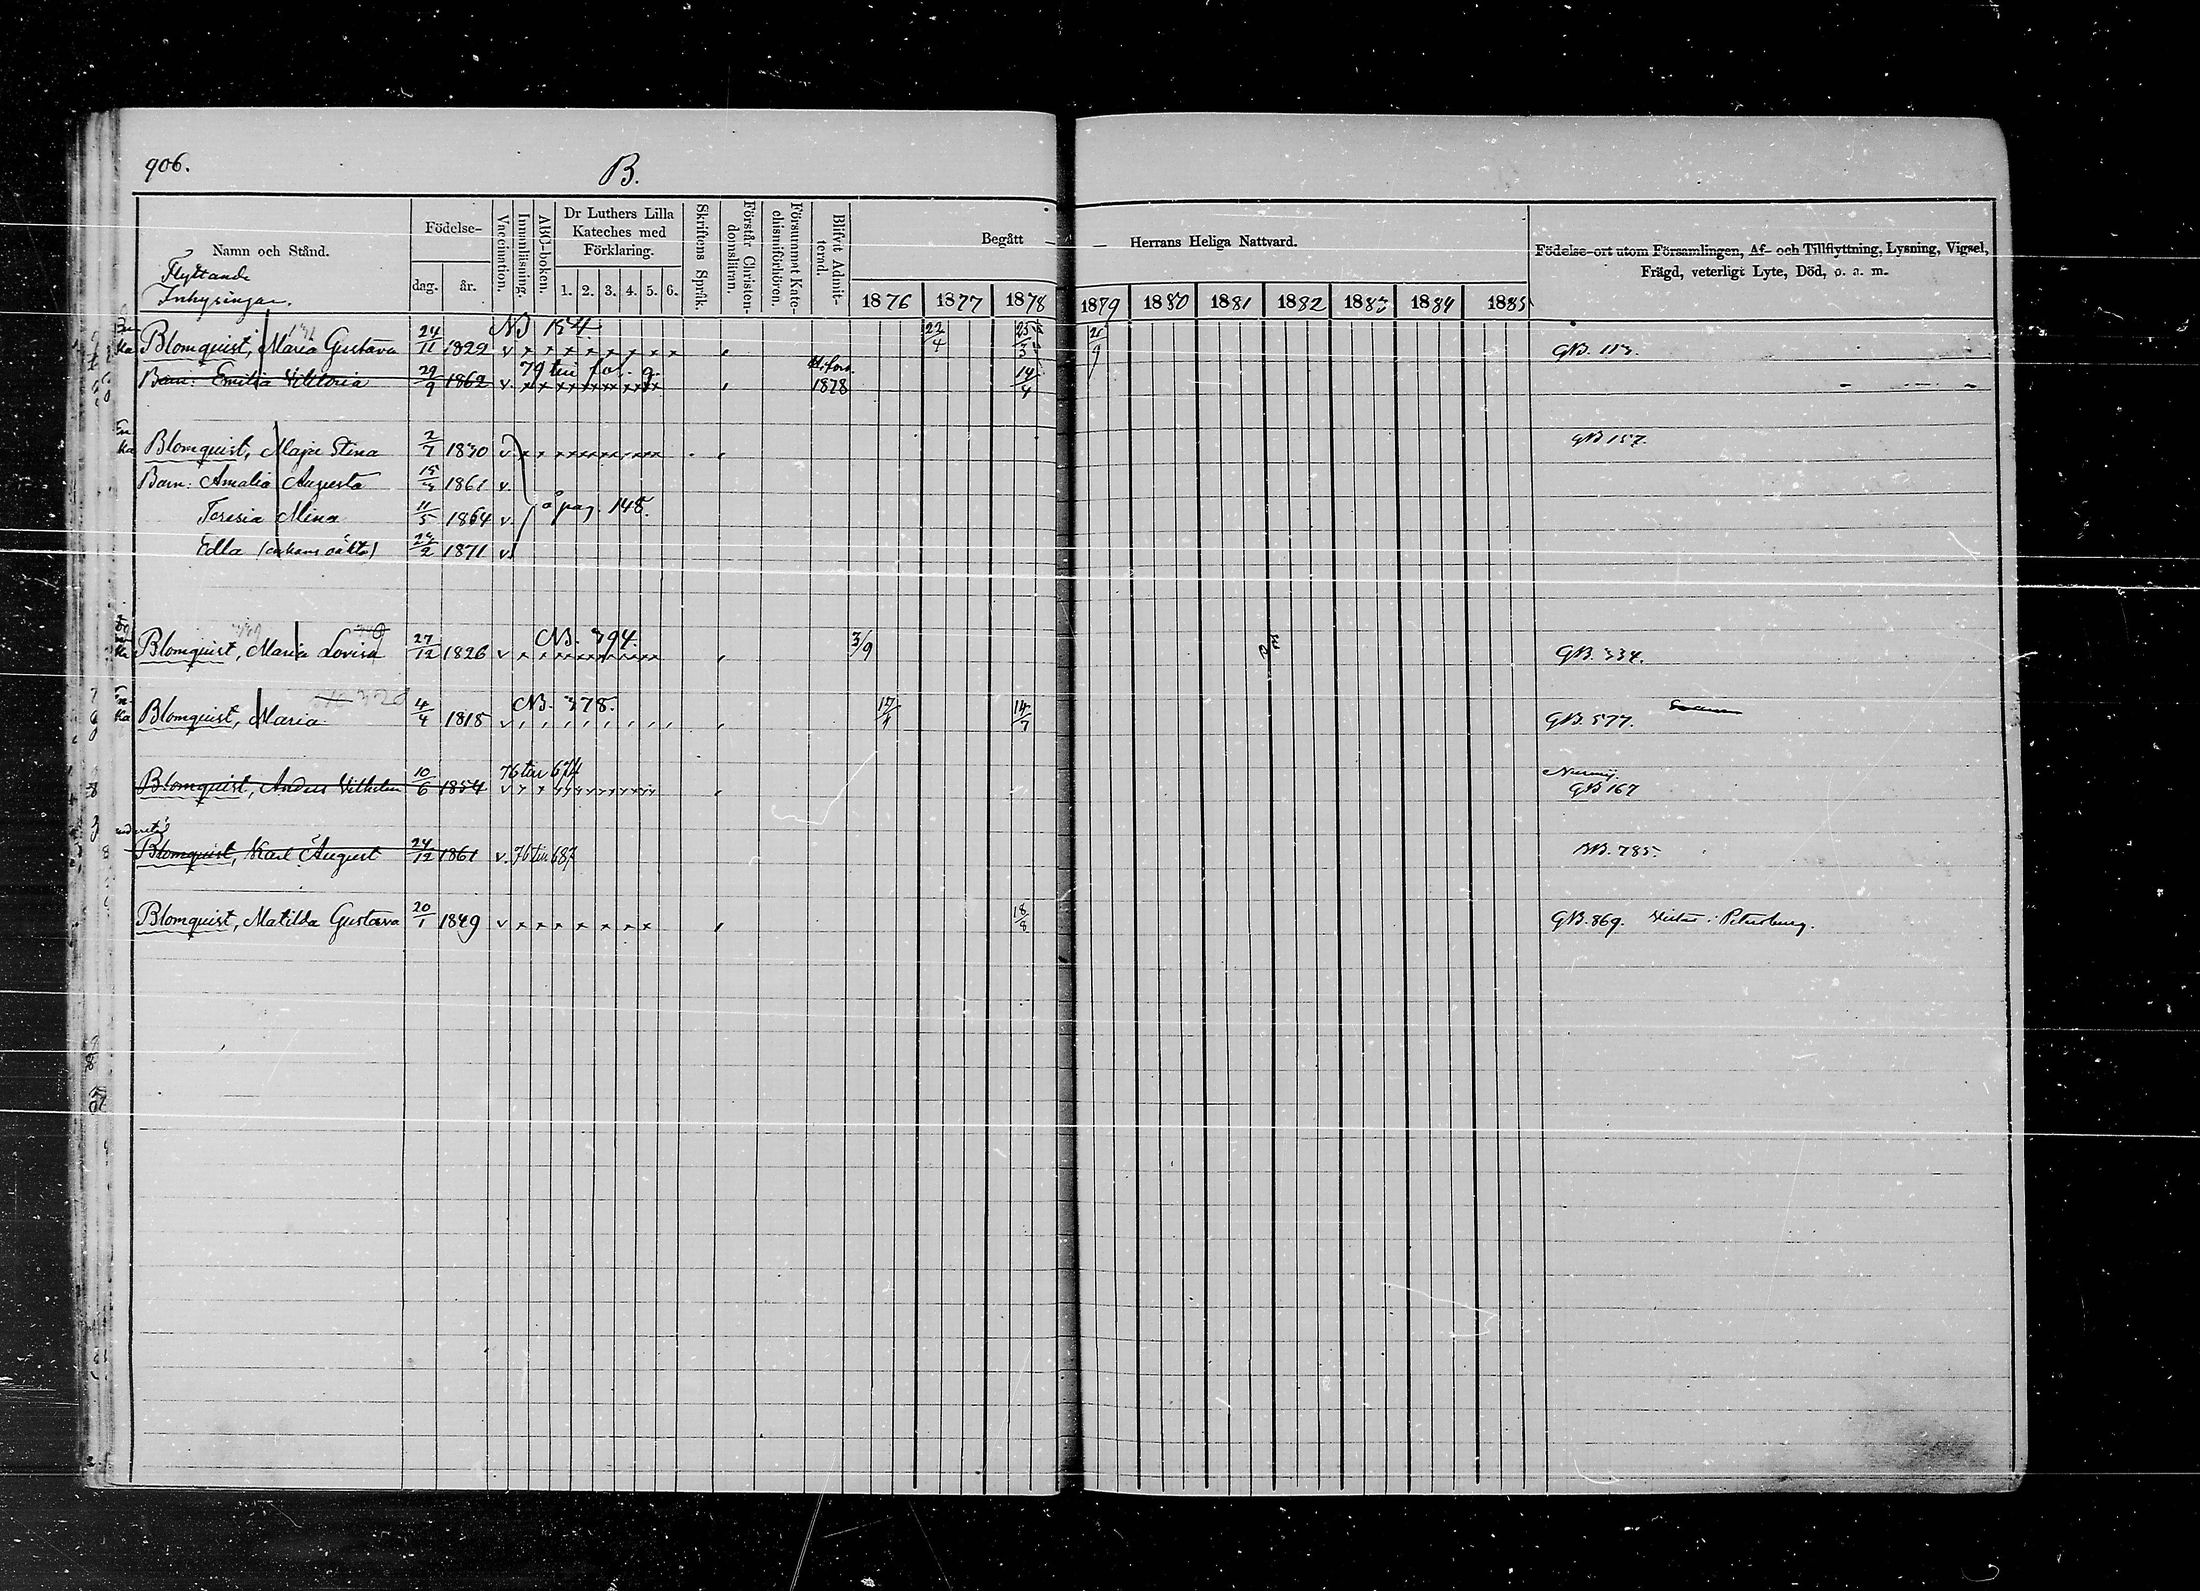 906.
B.
Namn och Stånd.
Flyttande
Inhysingar.
Födelse-
dag. år.
Vaccination.
Innanläsning.
ABC-boken.
Dr Luthers Lilla
Kateches med
Förklaring.
1. 2. 3. 4. 5. 6.
Skriftens Språk.
Förstår Christen-
domsläran.
Försummat Kate-
chismiförhören.
Blifvit Admit-
terad.
Begått
Herrans Heliga Nattvard.
1876 1877 1878 1879 1880 1881 1882 1883 1884 1885
Födelse-ort utom Församlingen, Af- och Tillflyttning, Lysning, Vigsel,
Frägd, veterligt Lyte, Död, o. a. m.
Enka Blomquist, Maria Gustava 24/11 1822 v x x x x x x x x x 22/4 25/3 GB. 113.
Barn: Emilia Viktoria 29/9 1862 v. 79 till fol. 9. 1878 14/4
Enka Blomquist, Maja Stina 2/7 1830 v GB 157.
Barn: Amalia Augusta 15/3 1861 v.
Teresia Mina 11/5 1864 v. å pag. 148.
Edla 1871 v.
Enka Blomquist, Maria Lovisa 27/12 1826 v NB. 394. 3/9 GB. 334.
Enka Blomquist, Maria 4/4 1818 v NB. 378. GB. 577.
Blomquist, Anders Vilhelm 10/6 1854 v 76 till 674 GB 167
Blomquist, Karl August 24/12 1861 v. 76 till 687 BB. 785.
Blomquist, Matilda Gustava 20/1 1849 v x x x x x x x 18/8 GB. 869. Vistas i Petersburg.